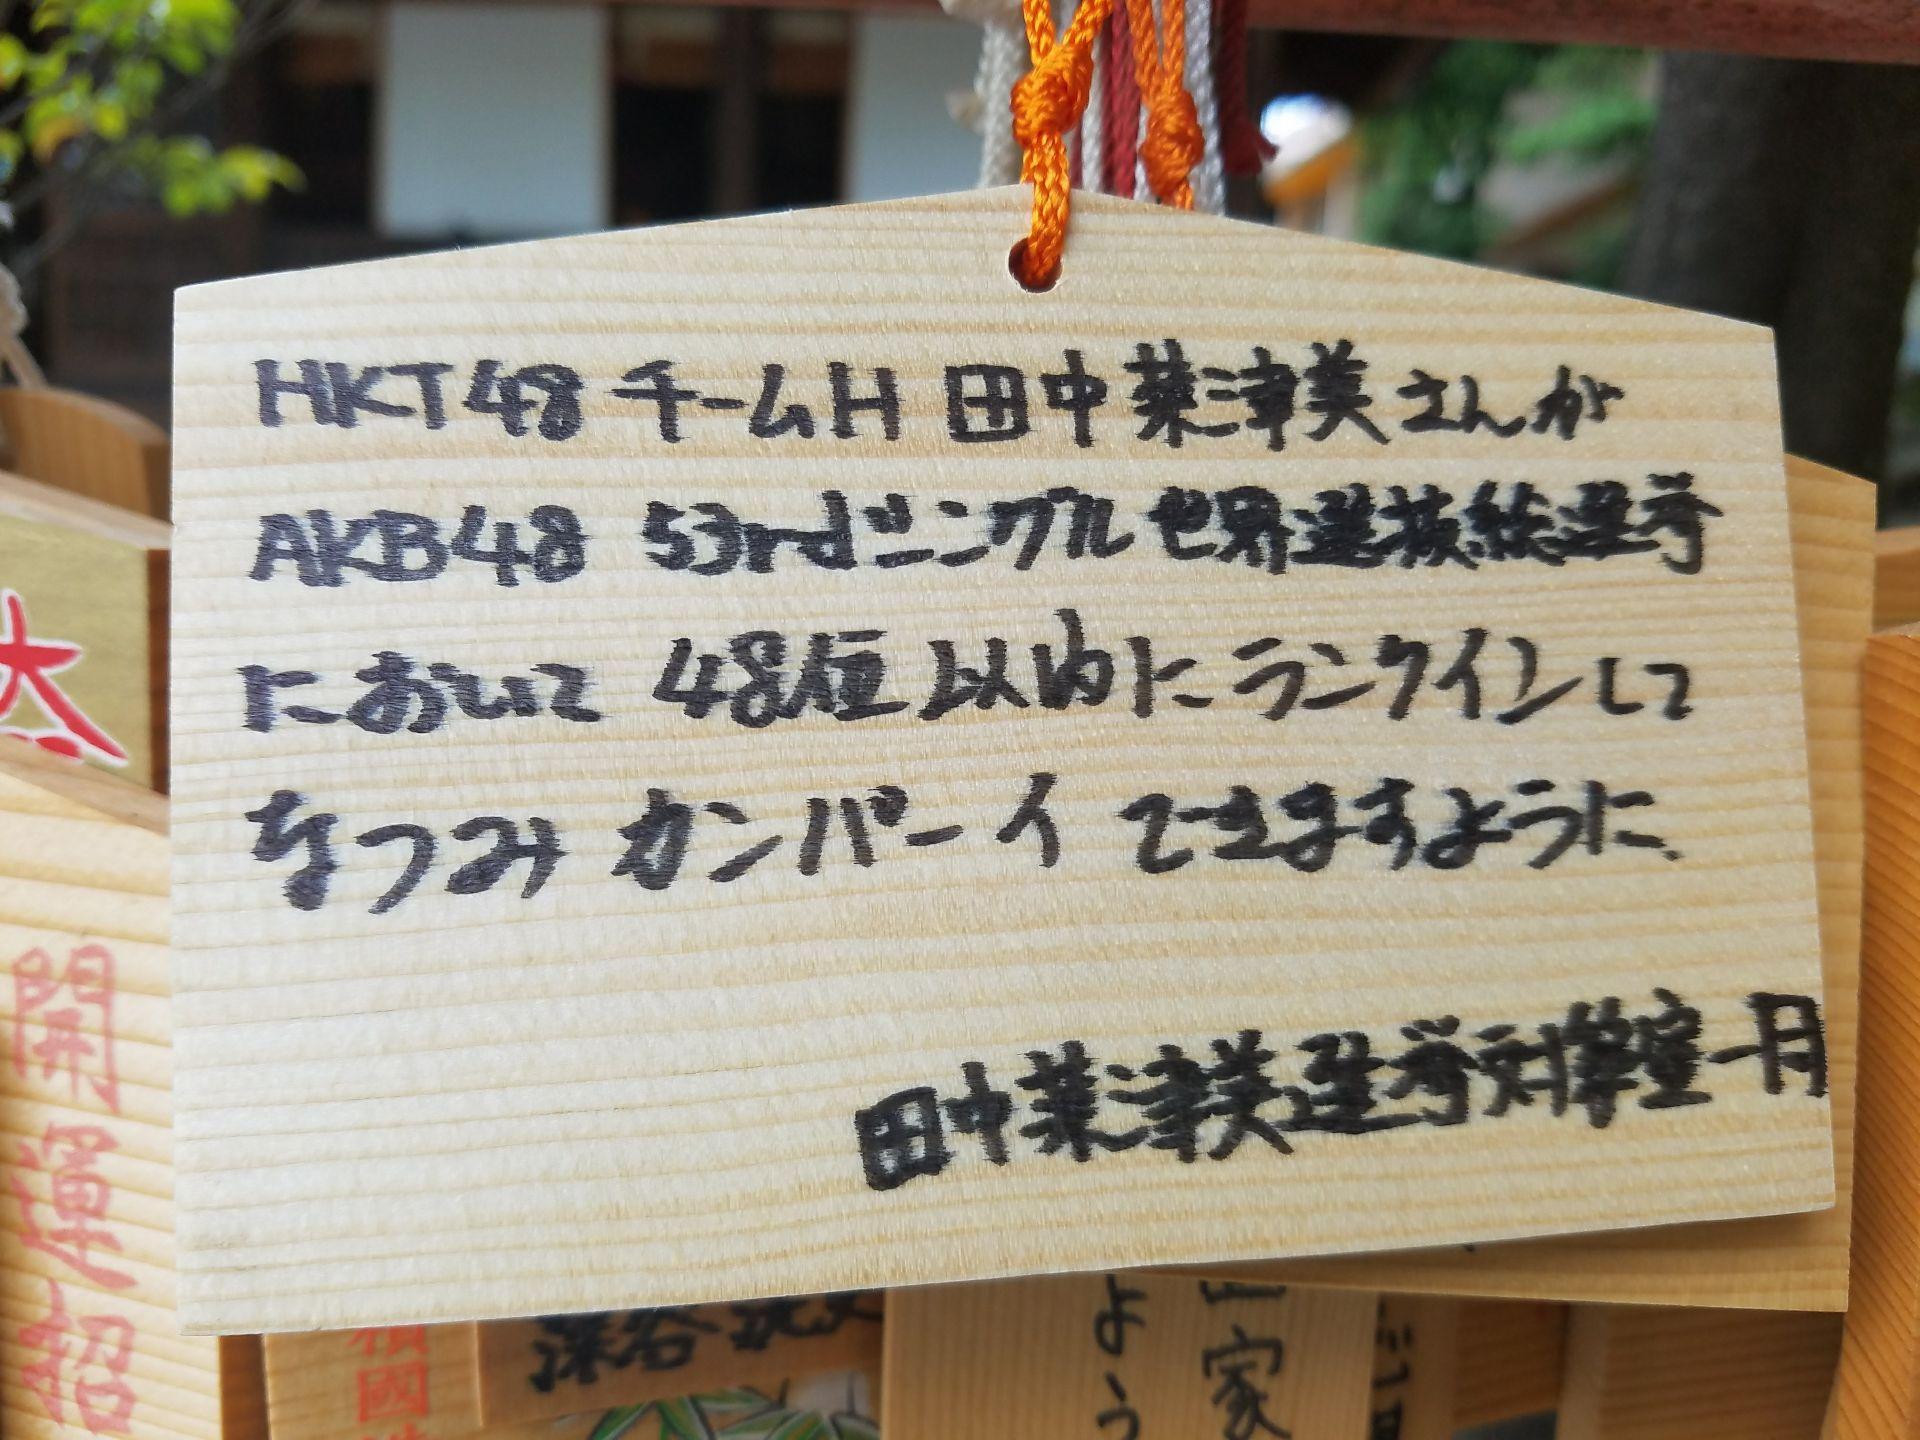 HKT48 チームH 田中菜津美さんが
AKB48 53rdシングル 世界選抜総選挙
において 48位以内にランクインして
なつみカンパーイできますように、
田中菜津美選考対策室一同
開運招
よう
家